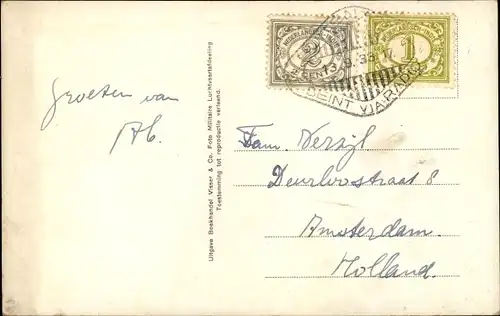 NEDERLANDSCH-INDIË
2
CENTS
NEDERLANDSCH-INDIË
1
CENT
SEINT VIA RADIO
Groeten van
Ab.
Uitgave Boekhandel Visser & Co. Foto Militaire Luchtvaartafdeeling
Toestemming tot reproductie verleend.
Fam. Verzijl
Deurloostraat 8
Amsterdam.
Holland.